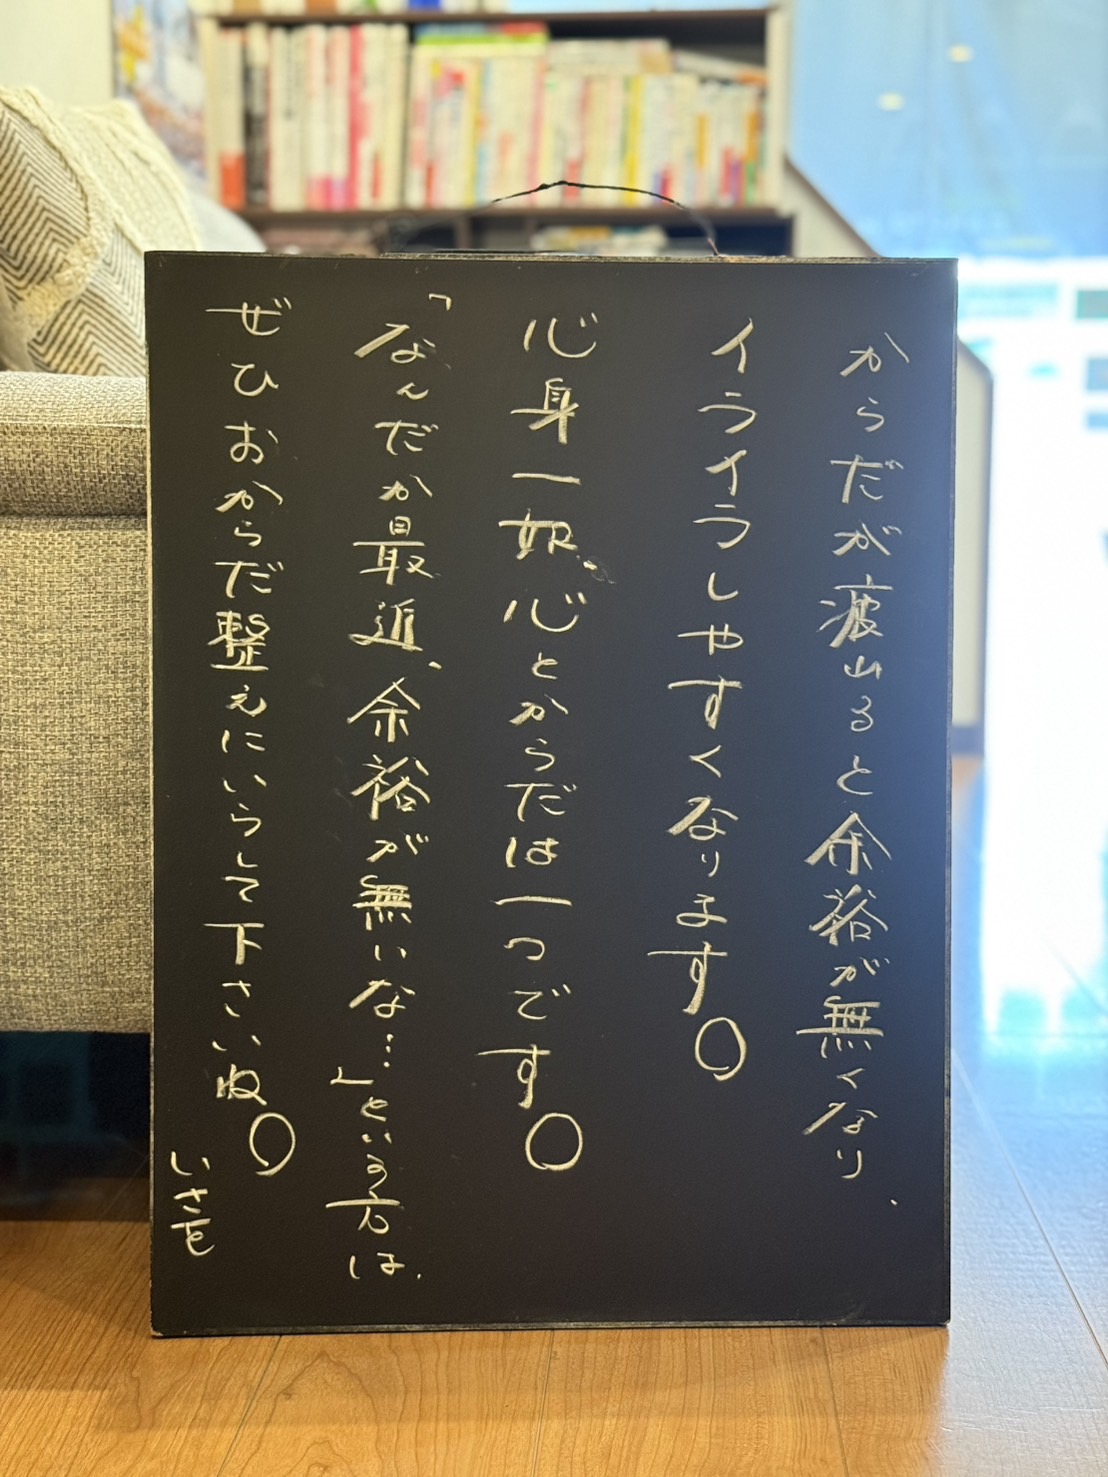 からだが疲れると余裕が無くなり、
イライラしやすくなります。
心身一如。心とからだは一つです。
「なんだか最近、余裕が無いな…」という方は、
ぜひおからだ整えにいらして下さいね。
いさを